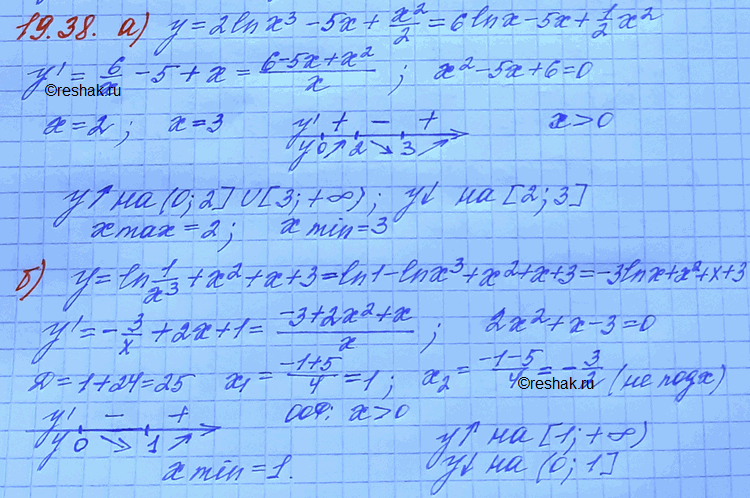 19.38. а) y = 2lnx³ - 5x + x²/2 = 6lnx - 5x + 1/2 x²
y' = 6/x - 5 + x = (6-5x+x²)/x ; x² - 5x + 6 = 0
©reshak.ru
x = 2 ; x = 3 y' + - + x > 0
y 0 ↗ 2 ↘ 3 ↗
y↑ на (0; 2] ∪ [3; +∞) ; y↓ на [2; 3]
x max = 2 ; x min = 3
б) y = ln 1/x³ + x² + x + 3 = ln1 - lnx³ + x² + x + 3 = -3lnx + x² + x + 3
y' = -3/x + 2x + 1 = (-3+2x²+x)/x ; 2x² + x - 3 = 0
Д = 1 + 24 = 25 x₁ = (-1+5)/4 = 1 ; x₂ = (-1-5)/4 = -3/2 (не подх)
©reshak.ru
y' - + ООФ: x > 0
y 0 ↘ 1 ↗ y↑ на [1; +∞)
x min = 1. y↓ на (0; 1]